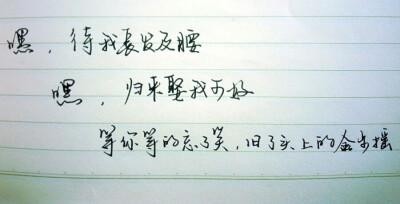 嘿，待我长发及腰
嘿，归来娶我可好
等你等的忘了笑，旧了头上的金步摇